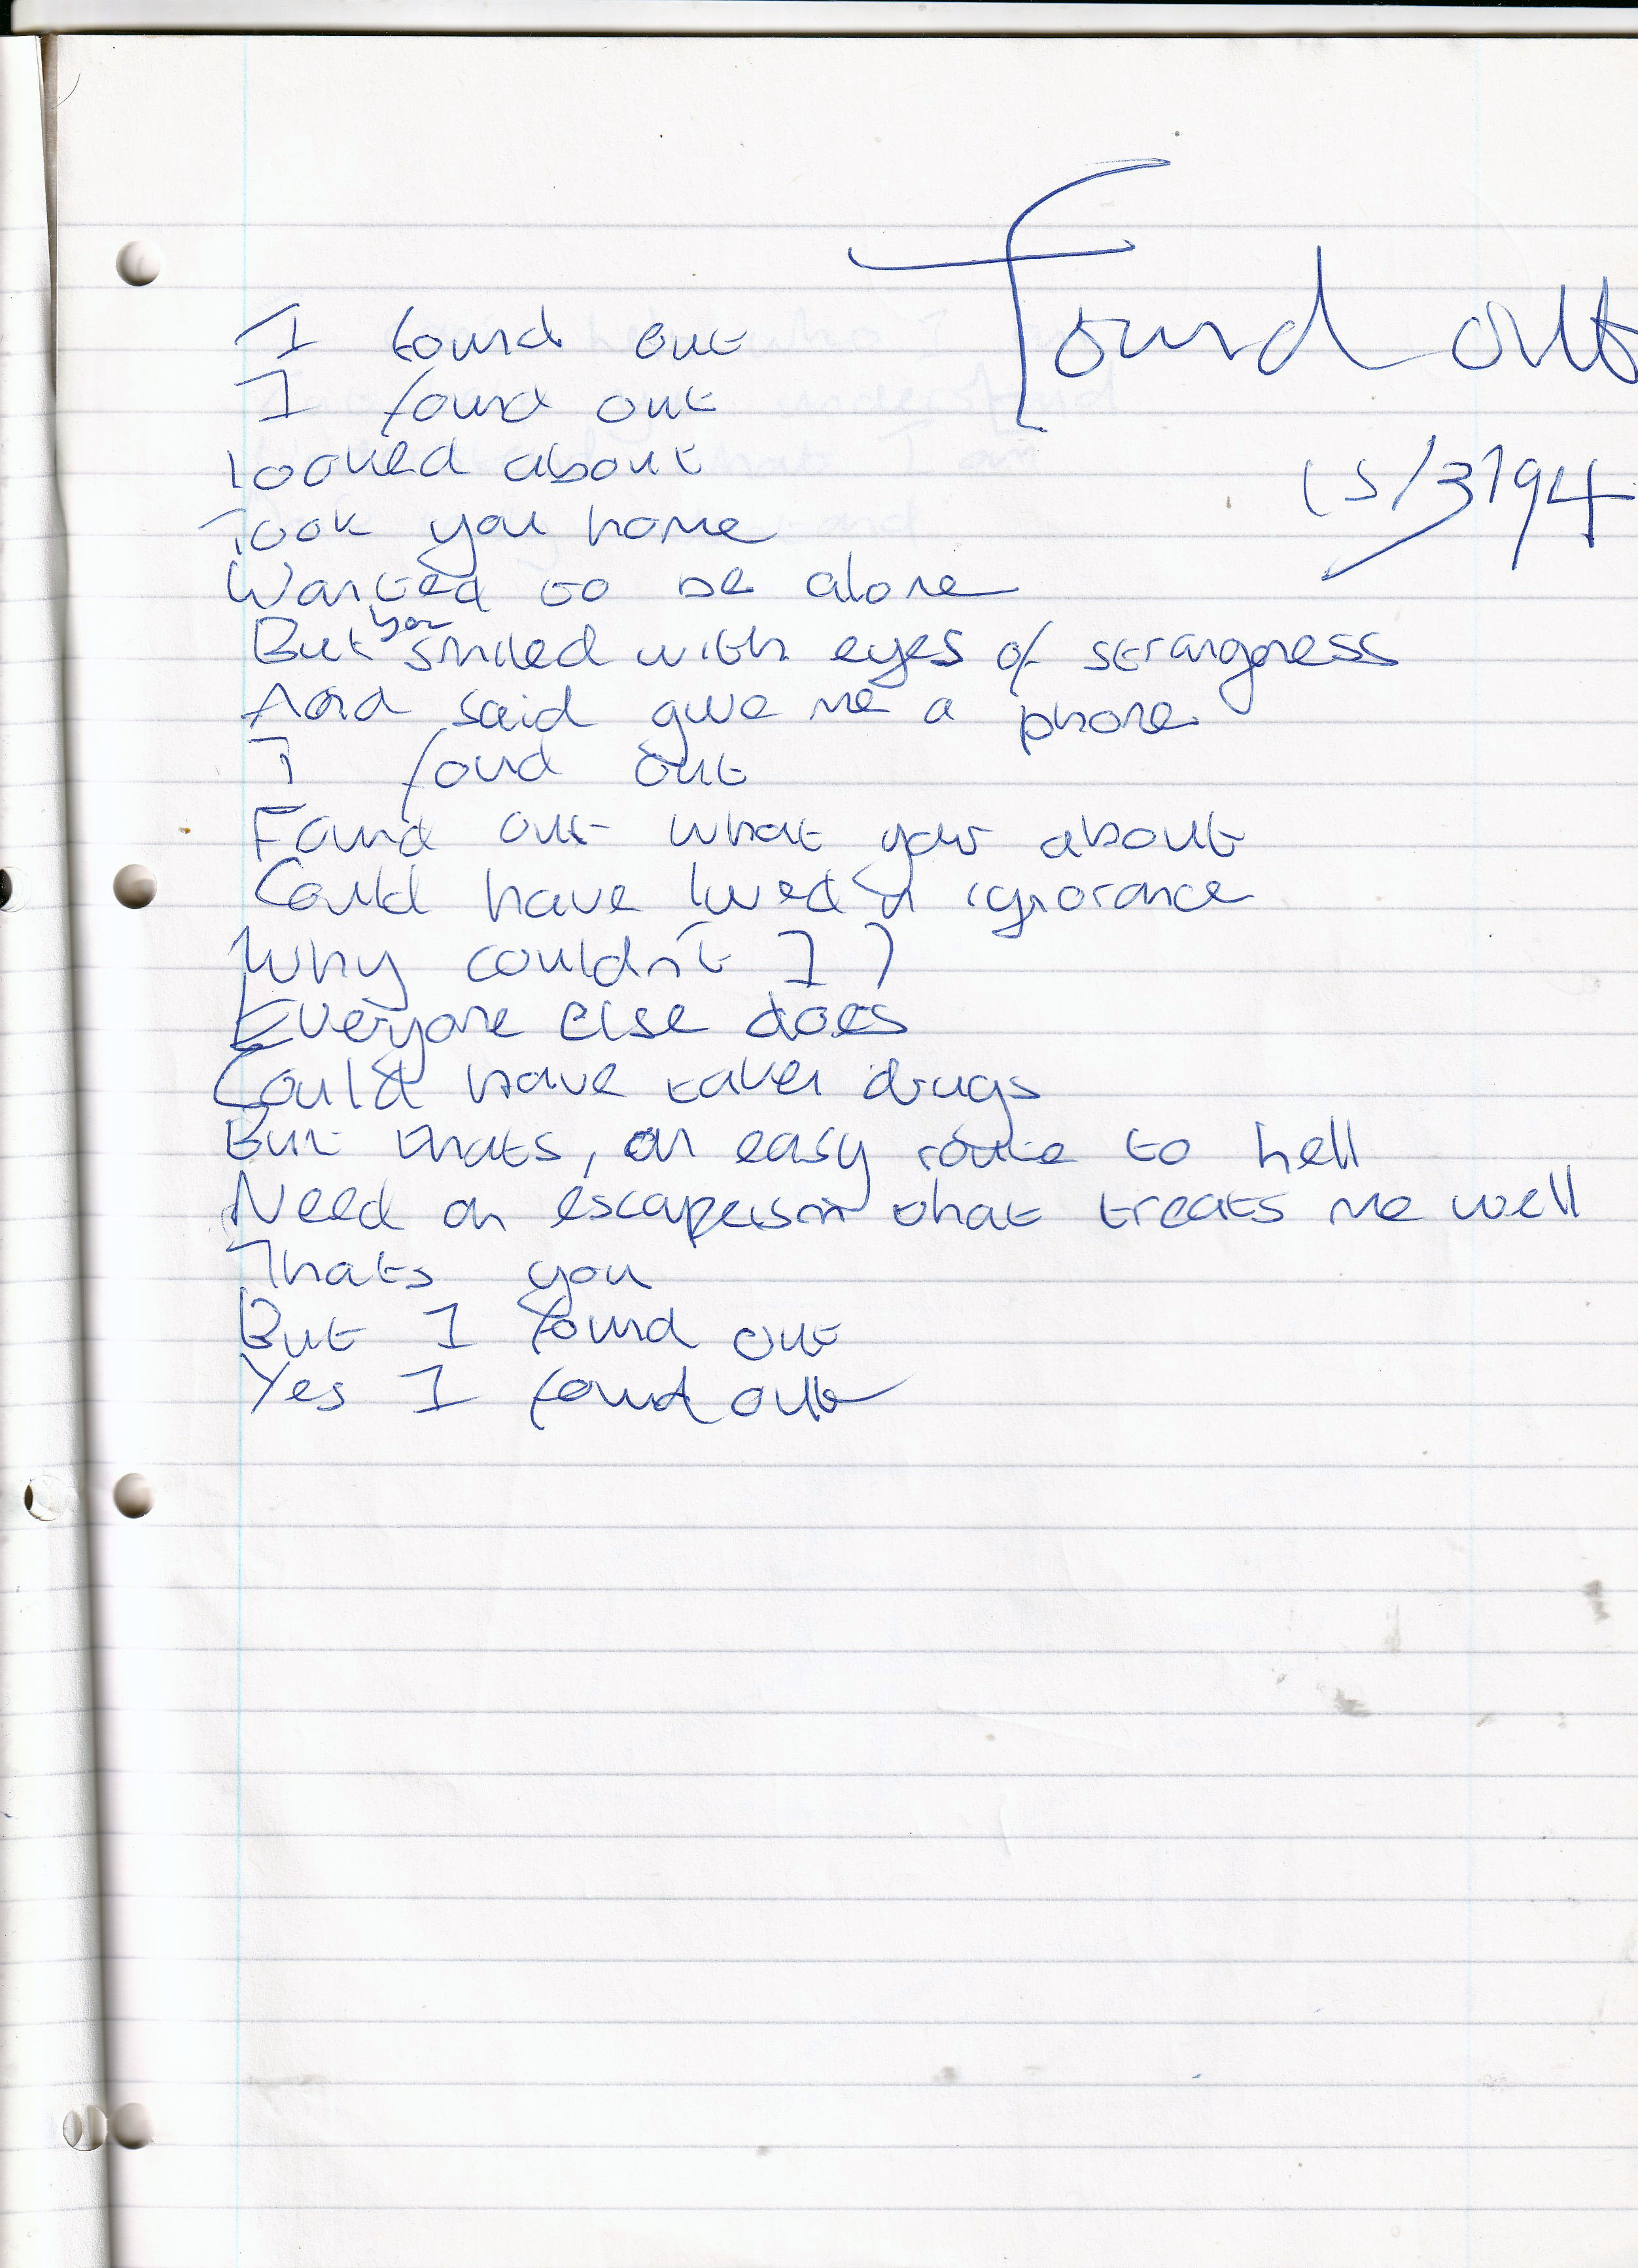 Found out
15/3/94
I found out
I found out
looked about
Took you home
Wanted to be alone
But you smiled with eyes of strangness
And said give me a phone
I found out
Found out what your about
Could have lived in ignorance
Why couldn't I?
Everyone else does
Could have taken drugs
But thats, an easy route to hell
Need an escapeism that treats me well
Thats you
But I found out
Yes I found out